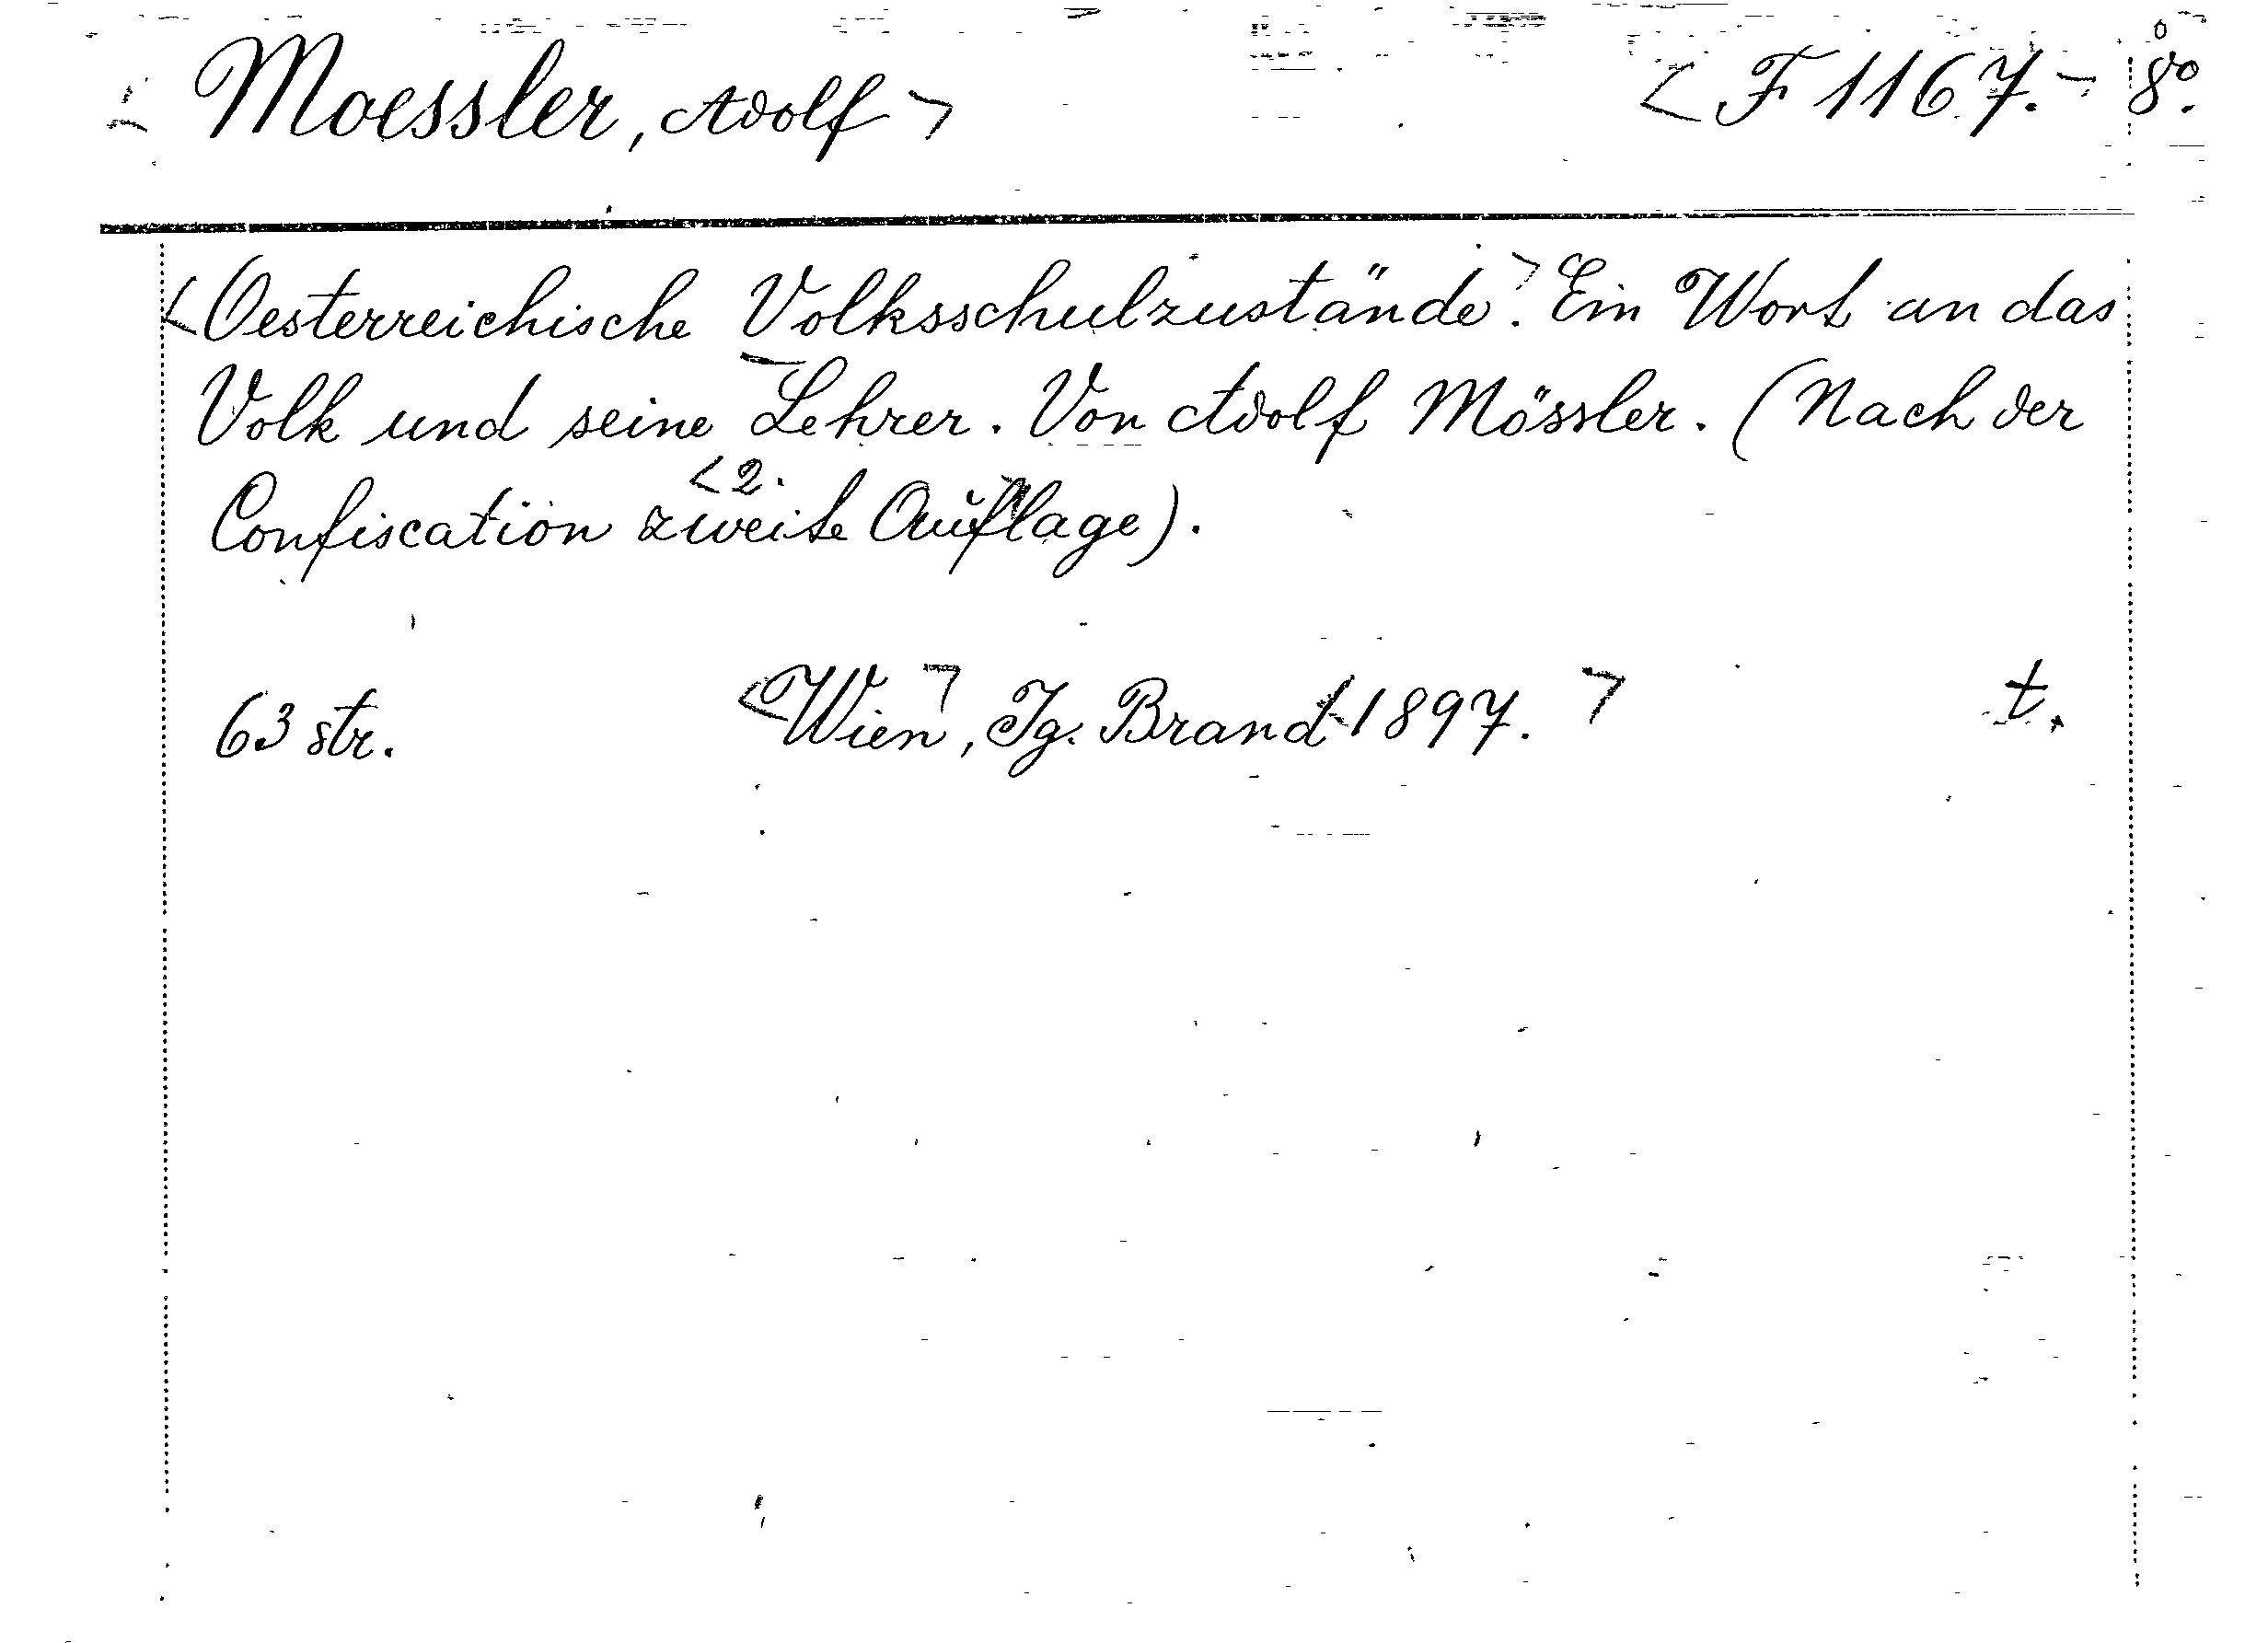 Moessler, Adolf F 1167. 8°.
Oesterreichische Volksschulzustände. Ein Wort an das
Volk und seine Lehrer. Von Adolf Mössler. (Nach der
2.
Confiscation zweite Auflage).
63 str. Wien, Ig. Brand 1897. t.